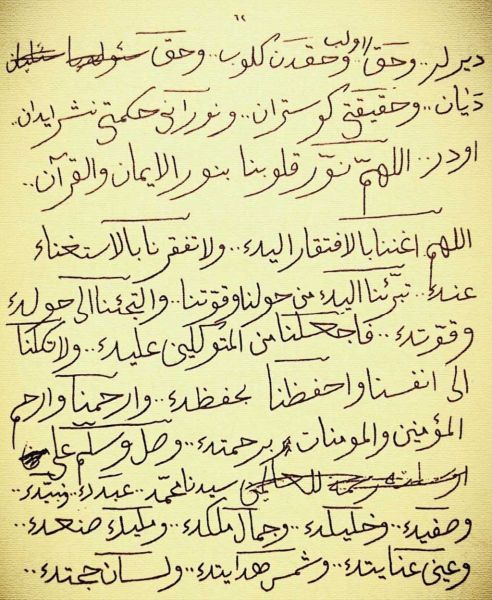 ١٢
ديرلر.. وحق اولوب وحقدن كلوب.. وحق
ديان.. وحقيقتى كوستران.. ونورانى حكمتى نشر ايدن
اودر.. اللهم نوّر قلوبنا بنور الايمان والقرآن..
اللهم اغننا بالافتقار اليك.. ولا تفقرنا بالاستغناء
عنك.. تبرّئنا اليك من حولنا وقوتنا.. والتجئنا الى حولك
وقوتك.. فاجعلنا من المتوكلين عليك.. ولا تكلنا
الى انفسنا واحفظنا بحفظك.. وارحمنا وارحم
المؤمنين والمومنات برحمتك.. وصل وسلّم على
سيدنا محمد.. عبدك ونبيك..
وصفيك.. وخليلك.. وجمال ملكك.. ومليك صنعك..
وعين عنايتك.. وشمس هدايتك.. ولسان حجتك..